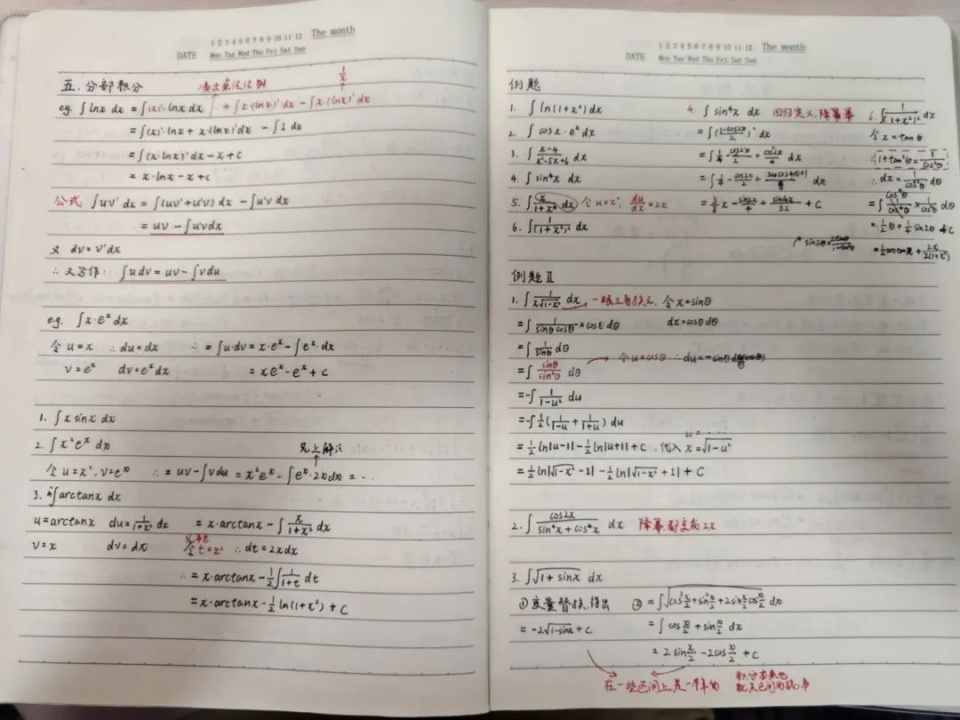 1 2 3 4 5 6 7 8 9 10 11 12 The month
DATE Mon Tue Wed Thu Fri Sat Sun
五. 分部积分 凑出乘法法则
eg. ∫lnx dx = ∫(x)'·lnx dx + ∫x·(lnx)'dx - ∫x·(lnx)'dx
1/x
= ∫(x)'·lnx + x·(lnx)'dx - ∫1 dx
= ∫(x·lnx)'dx - x + C
= x·lnx - x + C
公式 ∫uv'dx = ∫(uv'+u'v) dx - ∫u'v dx
= uv - ∫u'vdx
又 dv = v'dx
∴ 又写作: ∫udv = uv - ∫vdu
eg. ∫x·eˣdx
令 u=x ∴ du=dx ∴ = ∫u·dv = x·eˣ - ∫eˣ·dx
v=eˣ dv=eˣdx = xeˣ - eˣ + C
1. ∫x sinx dx
2. ∫x²eˣ dx 见上解法
令 u=x², v=eˣ ∴ = uv - ∫vdu = x²eˣ - ∫eˣ·2xdx = …
3. ∫arctanx dx
u=arctanx du=1/(1+x²) dx = x·arctanx - ∫x/(1+x²) dx
v=x dv=dx 令t=x² ∴ dt=2xdx
∴ = x·arctanx - 1/2∫1/(1+t) dt
= x·arctanx - 1/2 ln(1+x²) + C
1 2 3 4 5 6 7 8 9 10 11 12 The month
DATE Mon Tue Wed Thu Fri Sat Sun
例题
1. ∫ln(1+x²)dx
2. ∫cosx·eˣdx
3. ∫(x-4)/(x²-5x+6) dx
4. ∫sin⁴x dx
5. ∫x/(1+x²) dx 令u=x², du/dx=2x
6. ∫1/(1+x²)² dx
4. ∫sin⁴x dx 回归定义,降幂幂
= ∫((1-cos2x)/2)² dx
= ∫1/4 - cos2x/2 + cos²2x/4 dx
+ C
6. ∫1/(1+x²)² dx
令 x=tanθ
1+tan²θ=1/cos²θ
∴ dx=1/cos²θ dθ
= 1/2θ + 1/4 sin2θ + C
例题Ⅱ
1. ∫1/(x√(1-x²)) dx 一眼三角换元, 令x=sinθ
= ∫1/(sinθcosθ)×cosθ dθ dx=cosθdθ
= ∫1/sinθ dθ
= ∫sinθ/sin²θ dθ 令u=cosθ ∴ du=-sinθ
= -∫1/(1-u²) du
= -∫1/2(1/(1-u) + 1/(1+u)) du
= 1/2 ln|u-1| - 1/2 ln|u+1| + C, 代入 x=√(1-u²)
= 1/2 ln|√(1-x²) - 1| - 1/2 ln|√(1-x²) + 1| + C
2. ∫cos2x/(sin⁴x+cos⁴x) dx 降幂都变为2x
3. ∫√(1+sinx) dx
① 变量替换得出 ② = ∫√(cos²x/2+sin²x/2+2sinx/2cosx/2) dx
= -2√(1-sinx) + C = ∫cosx/2 + sinx/2 dx
= 2sinx/2 - 2cosx/2 + C
在一些区间上是一样的